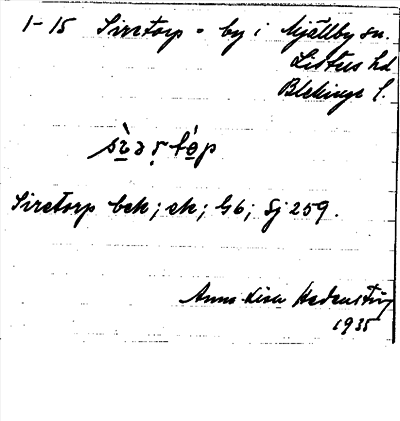 1-15 Siretorp - by i Mjällby sn.
Listers hd
Blekinge l.
Siretorp bek; ek; G6; Sj 259.
Anna Lisa Hedenstierna
1935